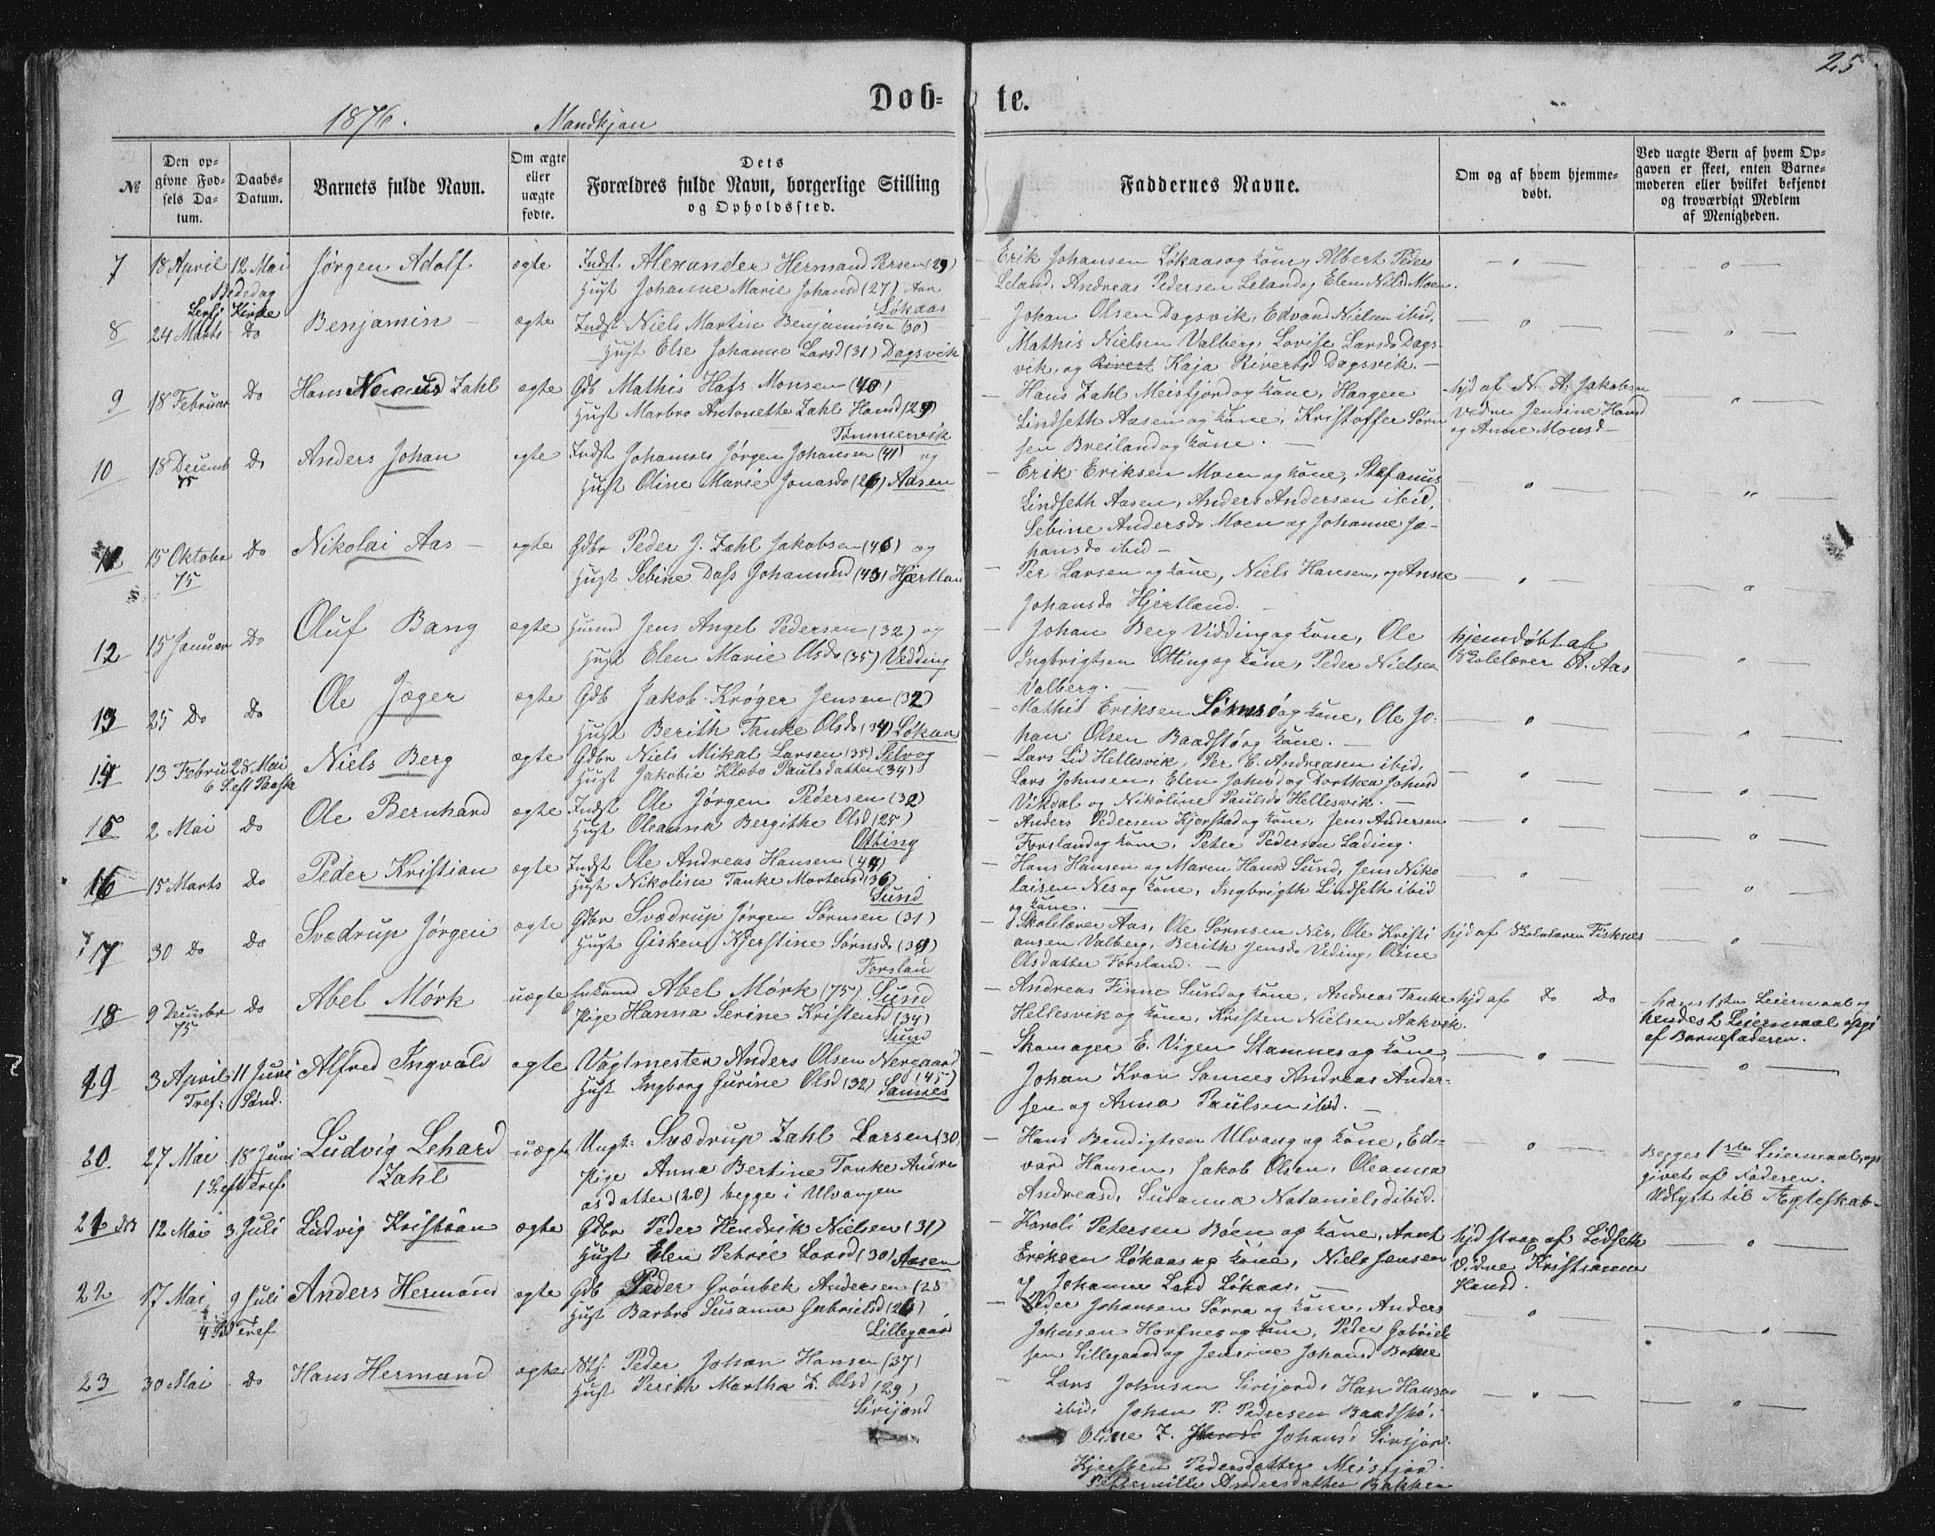 25
Døb- te.
1876. Mandkjøn
№
Den opgivne Fødsels Datum.
Daabs-Datum.
Barnets fulde Navn.
Om ægte eller uægte fødte.
Dets Forældres fulde Navn, borgerlige Stilling og Opholdssted.
Faddernes Navne.
Om og af hvem hjemmedøbt.
Ved uægte Børn af hvem Opgaven er skeet, enten Barnemoderen eller hvilket bekjendt og troværdigt Medlem af Menigheden.
7 18 April 12 Mai Jørgen Adolf ægte Indst Alexander Hermand Persen (29)
Bededag Hust Johanne Marie Johansd (27) Løkaas
Kirke
Erik Johansen Løkaas og kone, Albert Peders
Leland, Andreas Pedersen Leland og Elen Nilsd Moen.
8 24 Marts do Benjamin ægte Indst Niels Martin Benjaminsen (30)
Hust Else Johanne Larsd (31) Dagsvik
Johan Olsen Dagsvik, Edvard Nielsen ibid,
Mathis Nielsen Valberg, Lovise Larsd Dags-
vik, og Kaja Rivertsd Dagsvik.
9 18 Februar do Hans Zahl ægte Gdb Mathis Hass Monsen (40)
Hust Marbro Antonette Zahl Hansd (29)
Tømmervik
Hans Zahl Meisfjord og kone, Haagen
Lindseth Aasen og kone, Kristoffer Sørn-
sen Breiland og kone.
hjd af N. A. Jakobsen
Vidne Jensine Hansd
og Anne Monsd
10 18 Decemb do Anders Johan ægte Indst Johannes Jørgen Johansen (41) og
75 Hust Oline Marie Jonasd (26) Aasen
Erik Eriksen Moen og kone, Stefanus
Lindseth Aasen, Anders Andersen ibid,
Sebine Andersd Moen og Johanne Jo-
hansd ibid
11 15 Oktober do Nikolai Aas ægte Gdbr Peder J. Zahl Jakobsen (46) og
75 Hust Sebine Dass Johannesd (43) Hjertland
Per Larsen og kone, Niels Hansen, og Anne
Johansd Hjertland.
12 15 Januar do Oluf Bang ægte Husmd Jens Angel Pedersen (32) og
Hust Elen Marie Olsd (35) Vedding
Johan Berg Vidding og kone, Ole
Ingbrigtsen Otting og kone, Peder Nielsen
Valberg.
hjemdøbt af
Skolelærer A. Aas
13 25 do do Ole Jæger ægte Gdb Jakob Krøger Jensen (32)
Hust Berith Tanke Olsd (34) Løkaas
Mathis Eriksen og kone, Ole Jo-
han Olsen Baadstø og kone.
14 13 Febru 28 Mai Niels Berg ægte Gdbr Niels Mikal Larsen (35) Selvog
6 S eft Paaske Hust Jakobie Klæbo Paulsdatter (34)
Lars Lid Hellesvik, Per E. Andreasen ibid,
Lars Johnsen, Elen Johnsd og Dorthea Johnsd
Vikdal og Nikoline Paulsd Hellesvik.
15 2 Mai do Ole Bernhard ægte Indst Ole Jørgen Pedersen (32)
Hust Oleanna Bergithe Olsd (25)
Otting
Anders Pedersen Kjørstad og kone, Jens Andersen
Forsland og kone, Peter Pedersen Lading.
16 15 Marts do Peder Kristian ægte Indst Ole Andreas Hansen (44)
Hust Nikoline Tanke Mortensd (36)
Sund
Hans Hansen og Maren Hansd Sund, Jens Niko-
laisen Nes og kone, Ingbrigth Lindseth ibid
og kone.
17 30 do do Svædrup Jørgen ægte Gdbr Svædrup Jørgen Sørnsen (31)
Hust Gisken Kjerstine Sørnsd (39)
Forsland
Skolelærer Aas, Ole Sørnsen Nes, Ole Kristi-
ansen Valberg, Berith Jensd Veding, Oline
Olsdatter Forsland.
hjd af Skolelærer Fisknes
18 9 Decembr do Abel Mörk uægte Enkemd Abel Mörk (75) Sund
75 Pige Hanna Serine Kristensd (34)
Sund
Andreas Finne Sund og kone, Andreas Tanke
Hellesvik og kone, Kristen Nielsen Aakvik.
hjd af do do
hans 1ste Leiermaal og
hendes 2 Leiermaal opgi
af Barnefaderen.
19 3 April 11 Juni Alfred Ingvald ægte Vagtmester Anders Olsen Nergaard (45)
Tref: Sønd. Hust Ingborg Gurine Olsd (32) Sannes
Skomager E. Vigen Stamnes og kone,
Johan Kron Sannes Andreas Ander-
sen og Anna Paulsen ibid.
20 27 Mai 18 Juni Ludvig Lehard Zahl uægte Ungk: Svædrup Zahl Larsen (30)
1 S eft Tref Pige Anna Bertine Tanke Andre-
asdatter (20) begge i Ulvangen
Hans Bendigtsen Ulvang og kone, Ed-
vard Hansen, Jakob Olsen, Oleanna
Andreasd, Susanna Natanielsd ibid.
Begges 1ste Leiermaal, op
givet af Faderen.
Udlyst til Ægteskab
21 12 Mai 3 Juli Ludvig Kristian ægte Gdbr Peder Hendrik Nielsen (31)
Hust Elen Petrie Larsd (30) Aasen
Karoli Petersen Bøen og kone, Arnt
Eriksen Løkaas og kone, Niels Jensen
og Johanne Larsd Løkaas.
hjd strax af Lidseth
Vidne Kristianna
Hansd.
22 17 Mai 9 Juli Anders Hermand ægte Gdb Peder Grønbek Andersen (28
4 S Tref Hust Barbro Susanna Gabrielsd (26)
Lillegaard
Peder Johansen Sørra og kone, Anders
Johnsen Horfnes og kone, Peder Gabriel-
sen Lillegaard og Jensine Johansd
23 30 Mai do Hans Hermand ægte Peder Johan Hansen (37)
Hust Perith Martha L. Olsd (29)
Sirijord
Lars Johnsen Sirijord, Hans Hansen
ibid, Johan P. Pedersen Baadstø,
Oline Z. Johans: Sirijor.
Kjersten Pedersdatter Meisfjord
Petternille Andersdatter Bakken